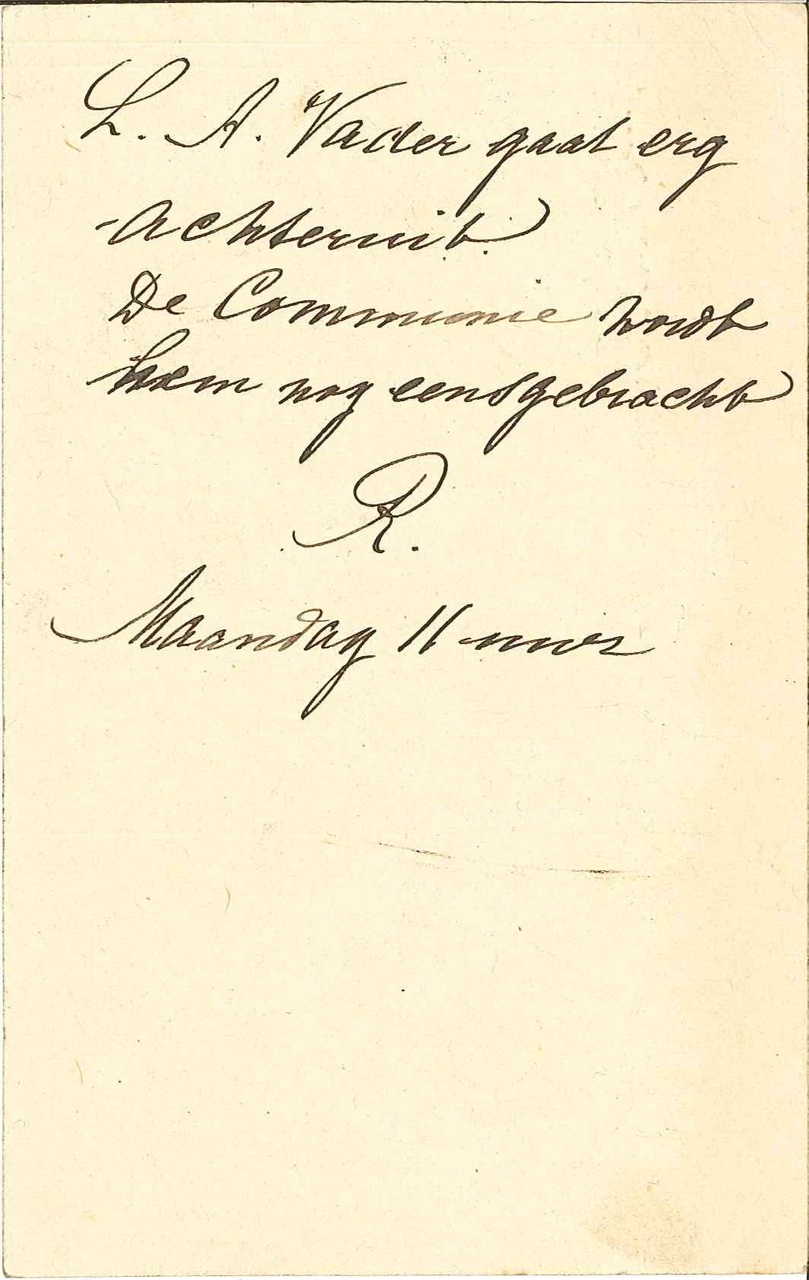 L. A. Vader gaat erg
achteruit.
De Communie wordt
hem nog eens gebracht
R.
Maandag 11 uur